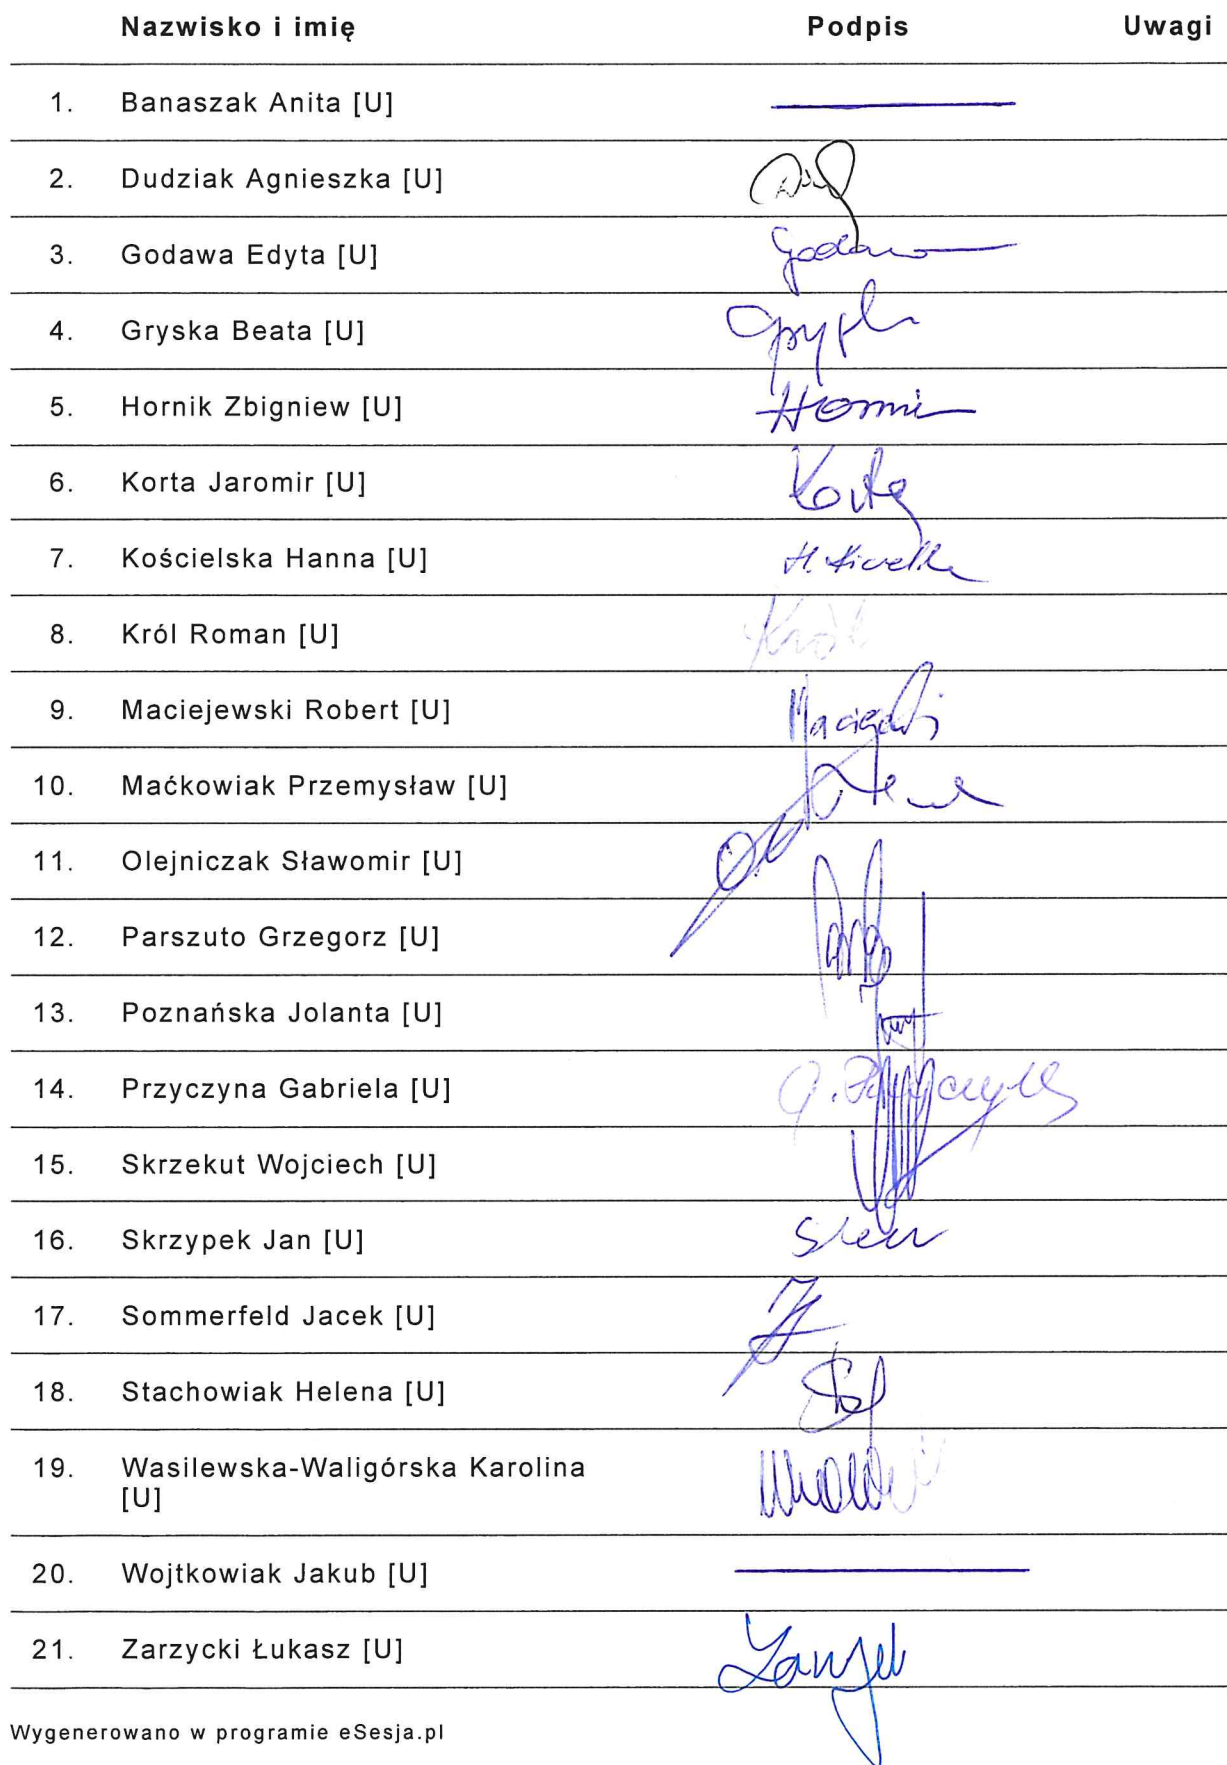 Nazwisko i imię Podpis Uwagi
1. Banaszak Anita [U]
2. Dudziak Agnieszka [U]
3. Godawa Edyta [U] Godawa
4. Gryska Beata [U]
5. Hornik Zbigniew [U]
6. Korta Jaromir [U] Korta
7. Kościelska Hanna [U]
8. Król Roman [U] Król
9. Maciejewski Robert [U]
10. Maćkowiak Przemysław [U]
11. Olejniczak Sławomir [U]
12. Parszuto Grzegorz [U]
13. Poznańska Jolanta [U]
14. Przyczyna Gabriela [U]
15. Skrzekut Wojciech [U]
16. Skrzypek Jan [U]
17. Sommerfeld Jacek [U]
18. Stachowiak Helena [U]
19. Wasilewska-Waligórska Karolina
[U]
20. Wojtkowiak Jakub [U]
21. Zarzycki Łukasz [U]
Wygenerowano w programie eSesja.pl